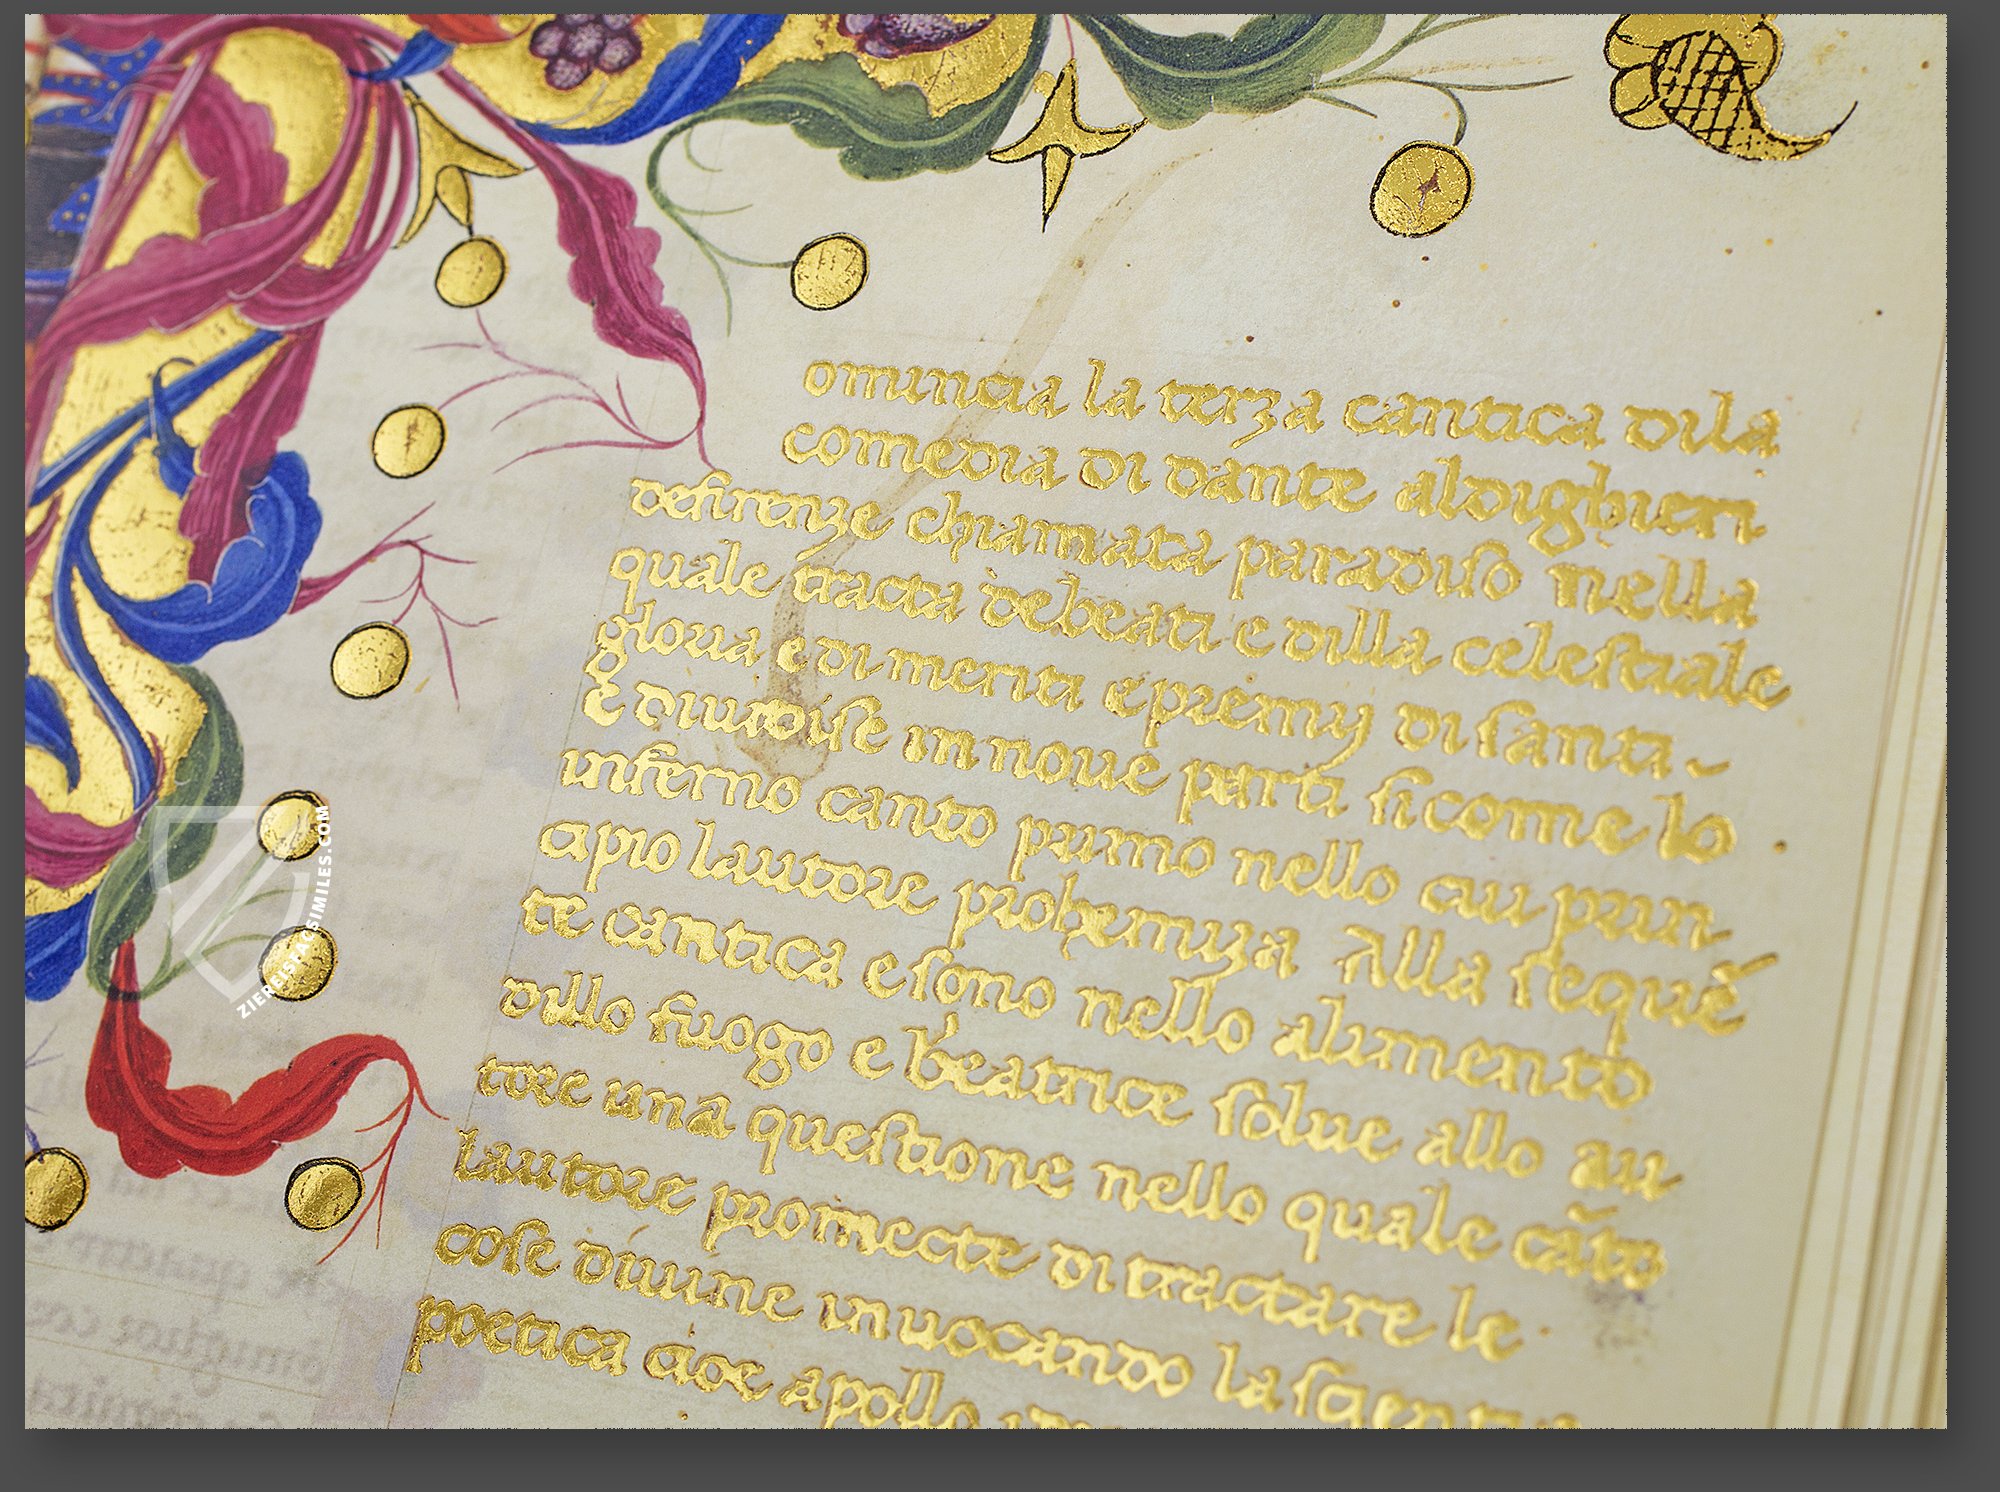 omincia la terza cantica dila
comedia di dante aldighieri
defirenze chiamata paradiso nella
quale tracta debeati e dilla celestiale
gloria e di meriti e premy di santi
E diuidise in noue parti sicome lo
inferno canto primo nello cui prin
cipio lautore prohemiza Alla sequē
te cantica e sono nello alimento
dillo fuogo e beatrice solue allo au
tore una questione nello quale cāto
lautore promecte di tractare le
cose diuine inuocando la scientia
poetica cioe apollo
ZIEREISFACSIMILES.COM